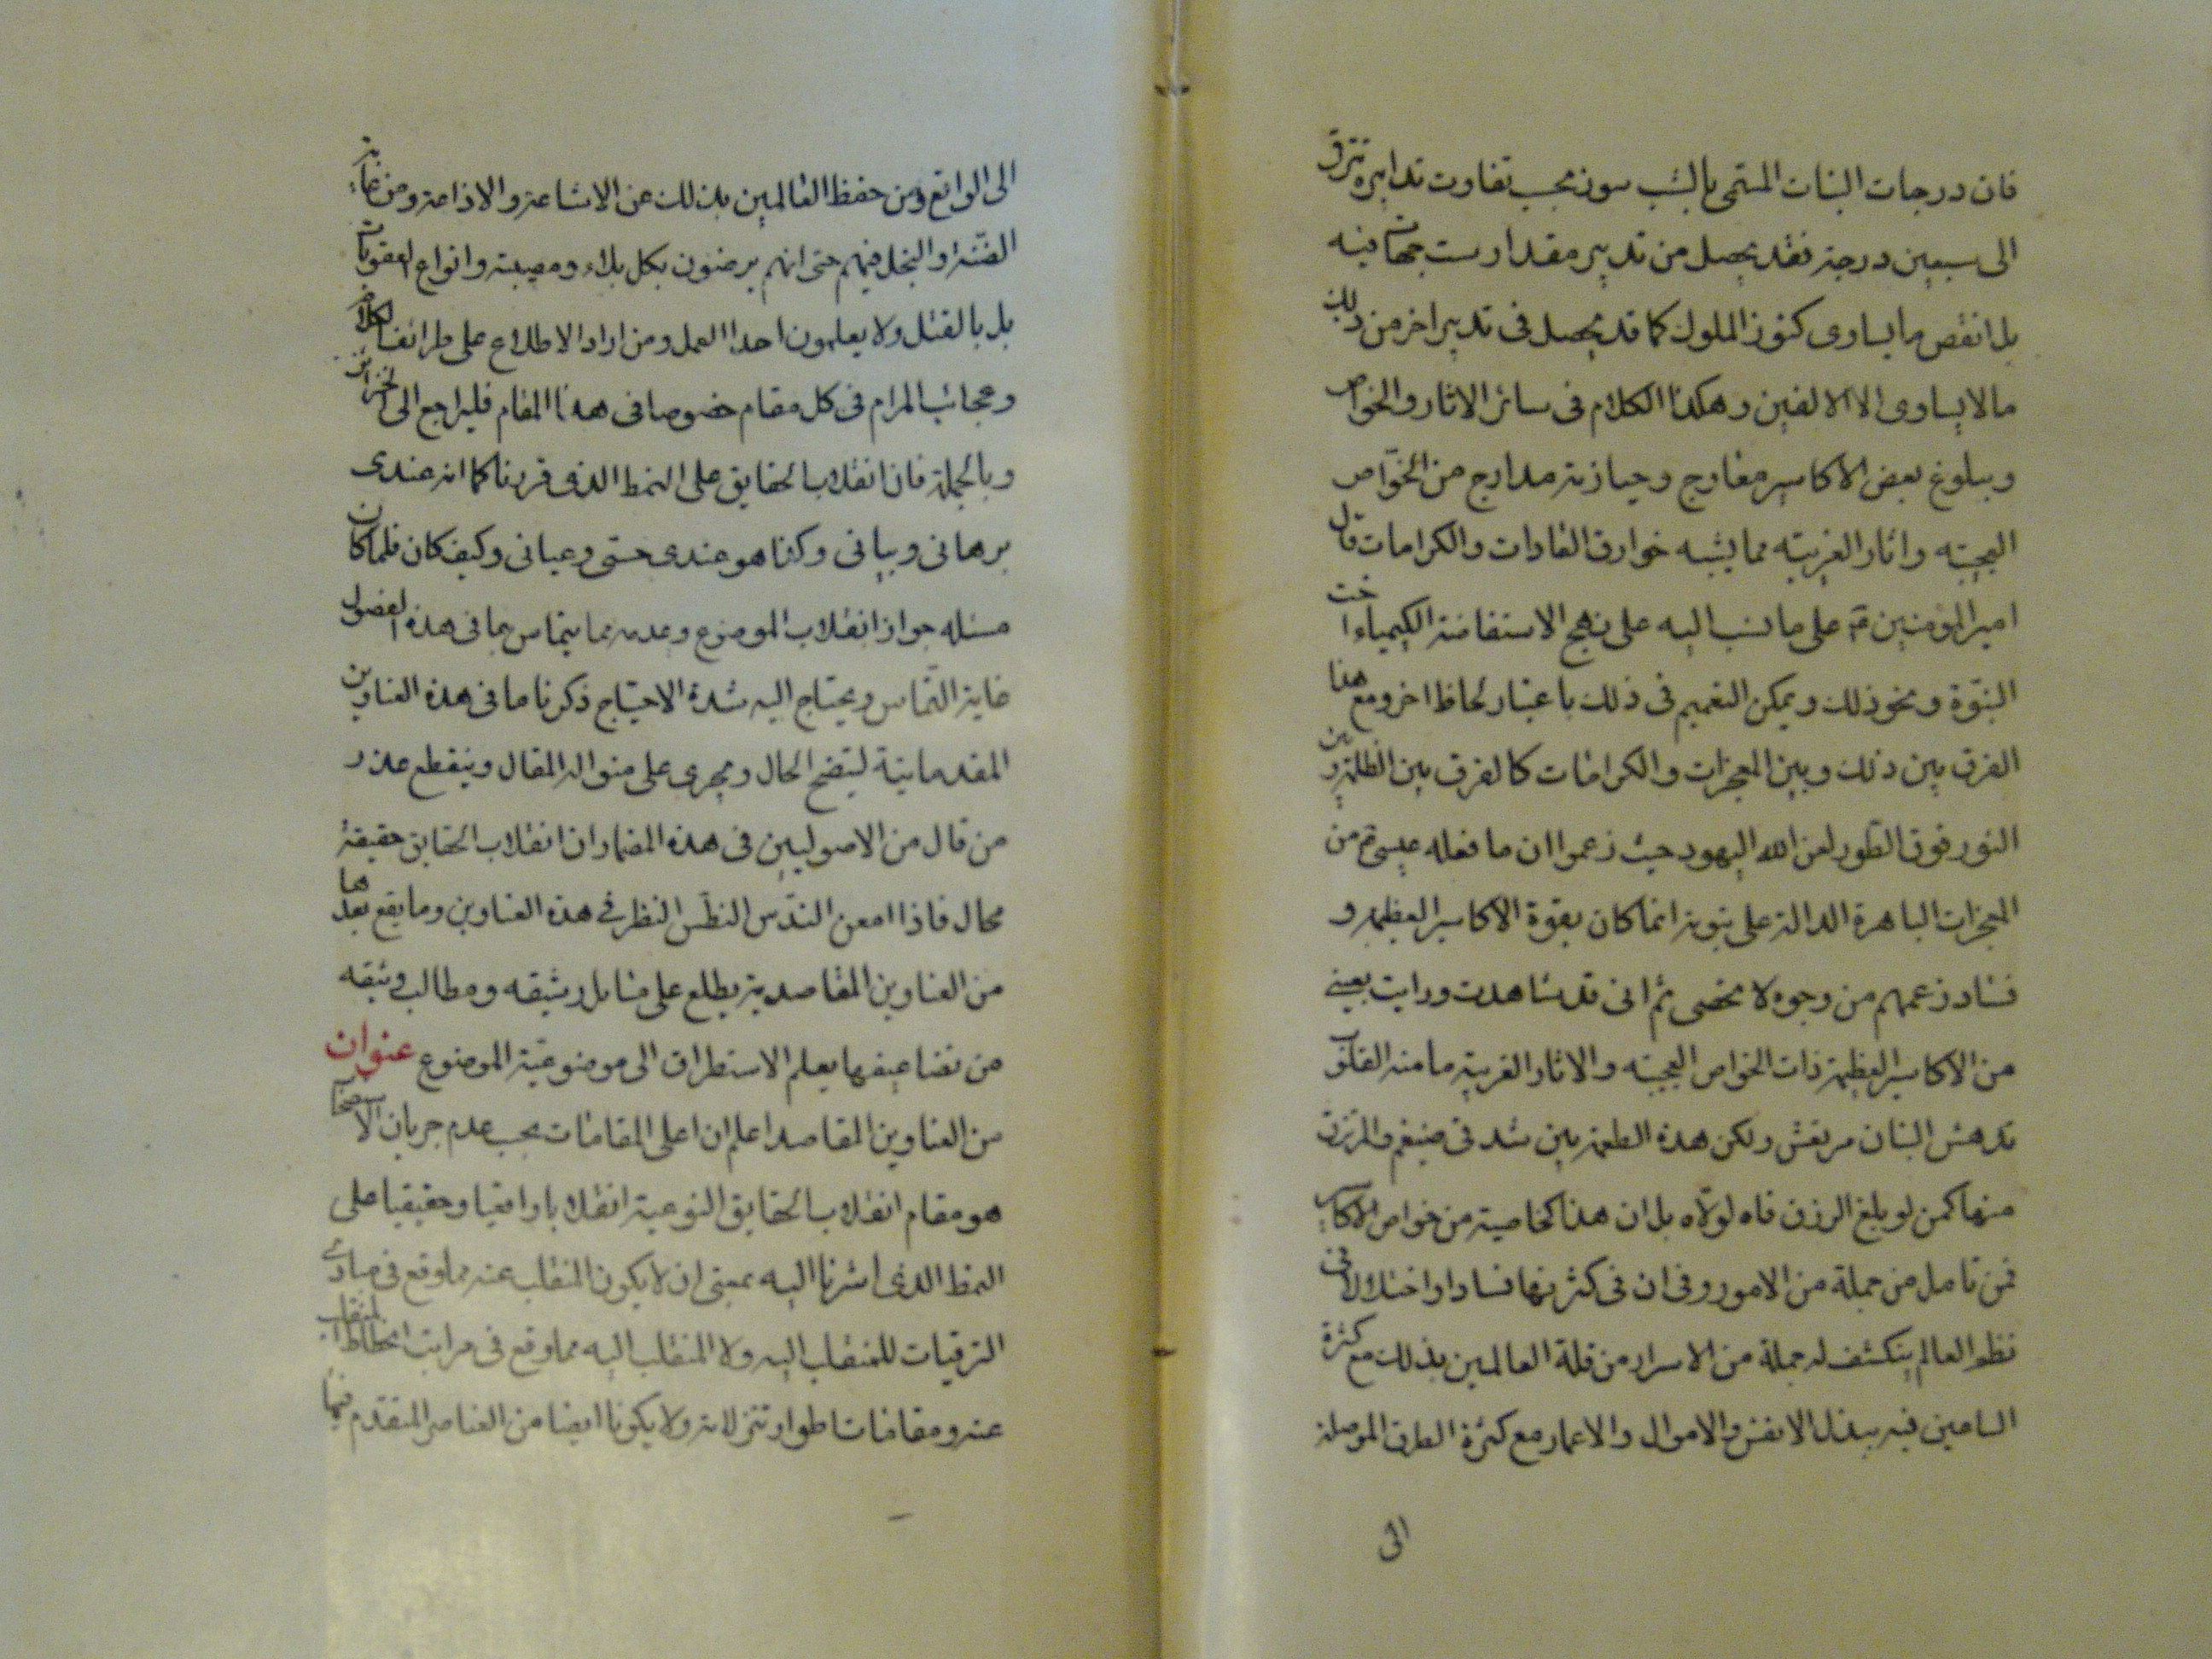 فان درجات النبات المسمى بالشب سوزن بحسب تفاوت تدابيره تترقى
الى سبعين درجة فقد يحصل من تدبير مقدار ست حبات فيه
بل انقص ما يساوى كنوز الملوك كما قد يحصل فى تدبير اخر من ذلك
مالا يساوى الا الالفين وهكذا الكلام فى سائر الاثار والخواص
وببلوغ بعض الاكاسير معارج وحيازته مدارج من الخواص
العجيبه واثار الغريبه مما يشبه خوارق العادات والكرامات قال
امير المؤمنين ع على ما نسب اليه على نهج الاستفاضة الكيمياء اخت
النبوة ونحو ذلك ويمكن التعميم فى ذلك باعتبار لحاظ اخر ومع هذا
الفرق بين ذلك وبين المعجزات والكرامات كالفرق بين الظلمة وبين
النور فوق الطور لعن الله اليهود حيث زعموا ان ما فعله عيسى ع من
المعجزات الباهرة الدالة على نبوته انما كان بقوة الاكاسير العظيمة و
فساد زعمهم من وجوه لا تخفى ثم انى قد شاهدت ورايت بعينى
من الاكاسير العظيمة ذات الخواص العجيبه والاثار الغريبة ما منه القلوب
تدهش البنان مرتعش ولكن هذه الطعمة بين شدقى ضيغم والمرتزق
منها كمن لو بلغ الرزق فاه لولاه بل ان هذا كخاصية من خواص الاكاسير
فمن تامل من جملة من الامور وفى ان فى كثرتها فسادا واختلالا فى
نظم العالم ينكشف له جملة من الاسرار من قلة العالمين بذلك مع كثرة
الساعين فيه ببذل الانفس والاموال والاعمار مع كثرة الطرق الموصلة
الى
الى الواقع ومن حفظ العالمين بذلك عن الاشاعة والاذاعة ومن غاية
الضنة والبخل فيهم حتى انهم يرضون بكل بلاء ومصيبة وانواع العقوبات
بل بالقتل ولا يعلمون احدا العمل ومن اراد الاطلاع على طرائف الكلام
وعجائب المرام فى كل مقام خصوصا فى هذا المقام فليراجع الى الخزائن
وبالجملة فان انقلاب الحقايق على النمط الذى قررنا كما انه عندى
برهانى وبيانى وكذا هو عندى حسى وعيانى وكيف كان فلما كان
مسئله جواز انقلاب الموضوع وعدمه مما يتماس بما فى هذه الفصول
غاية التماس ويحتاج اليه شدة الاحتياج ذكرنا ما فى هذه العناوين
المقدماتية ليتضح الحال ويجرى على منواله المقال وينقطع عذر
من قال من الاصوليين فى هذه المضمار ان انقلاب الحقايق حقيقة
محال فاذا امعن الندس النطس النظر فى هذه العناوين وما يقع بعدها
من العناوين المقاصدية يطلع على مسايل رشيقه ومطالب وثيقه
من تضاعيفها يعلم الاستطراق الى موضوعية الموضوع عنوان
من العناوين المقاصد اعلم ان اعلى المقامات بحسب عدم جريان الاستصحاب
هو مقام انقلاب الحقايق النوعية انقلابا واقعيا وحقيقيا على
النمط الذى اشرنا اليه بمعنى ان لا يكون المنقلب عنه مما وقع فى مبادى
الترقيات للمنقلب اليه ولا المنقلب اليه مما وقع فى مراتب انحطاط المنقلب
عنه ومقامات اطوار تنزلاته ولا يكونا ايضا من العناصر المتقدم فيها